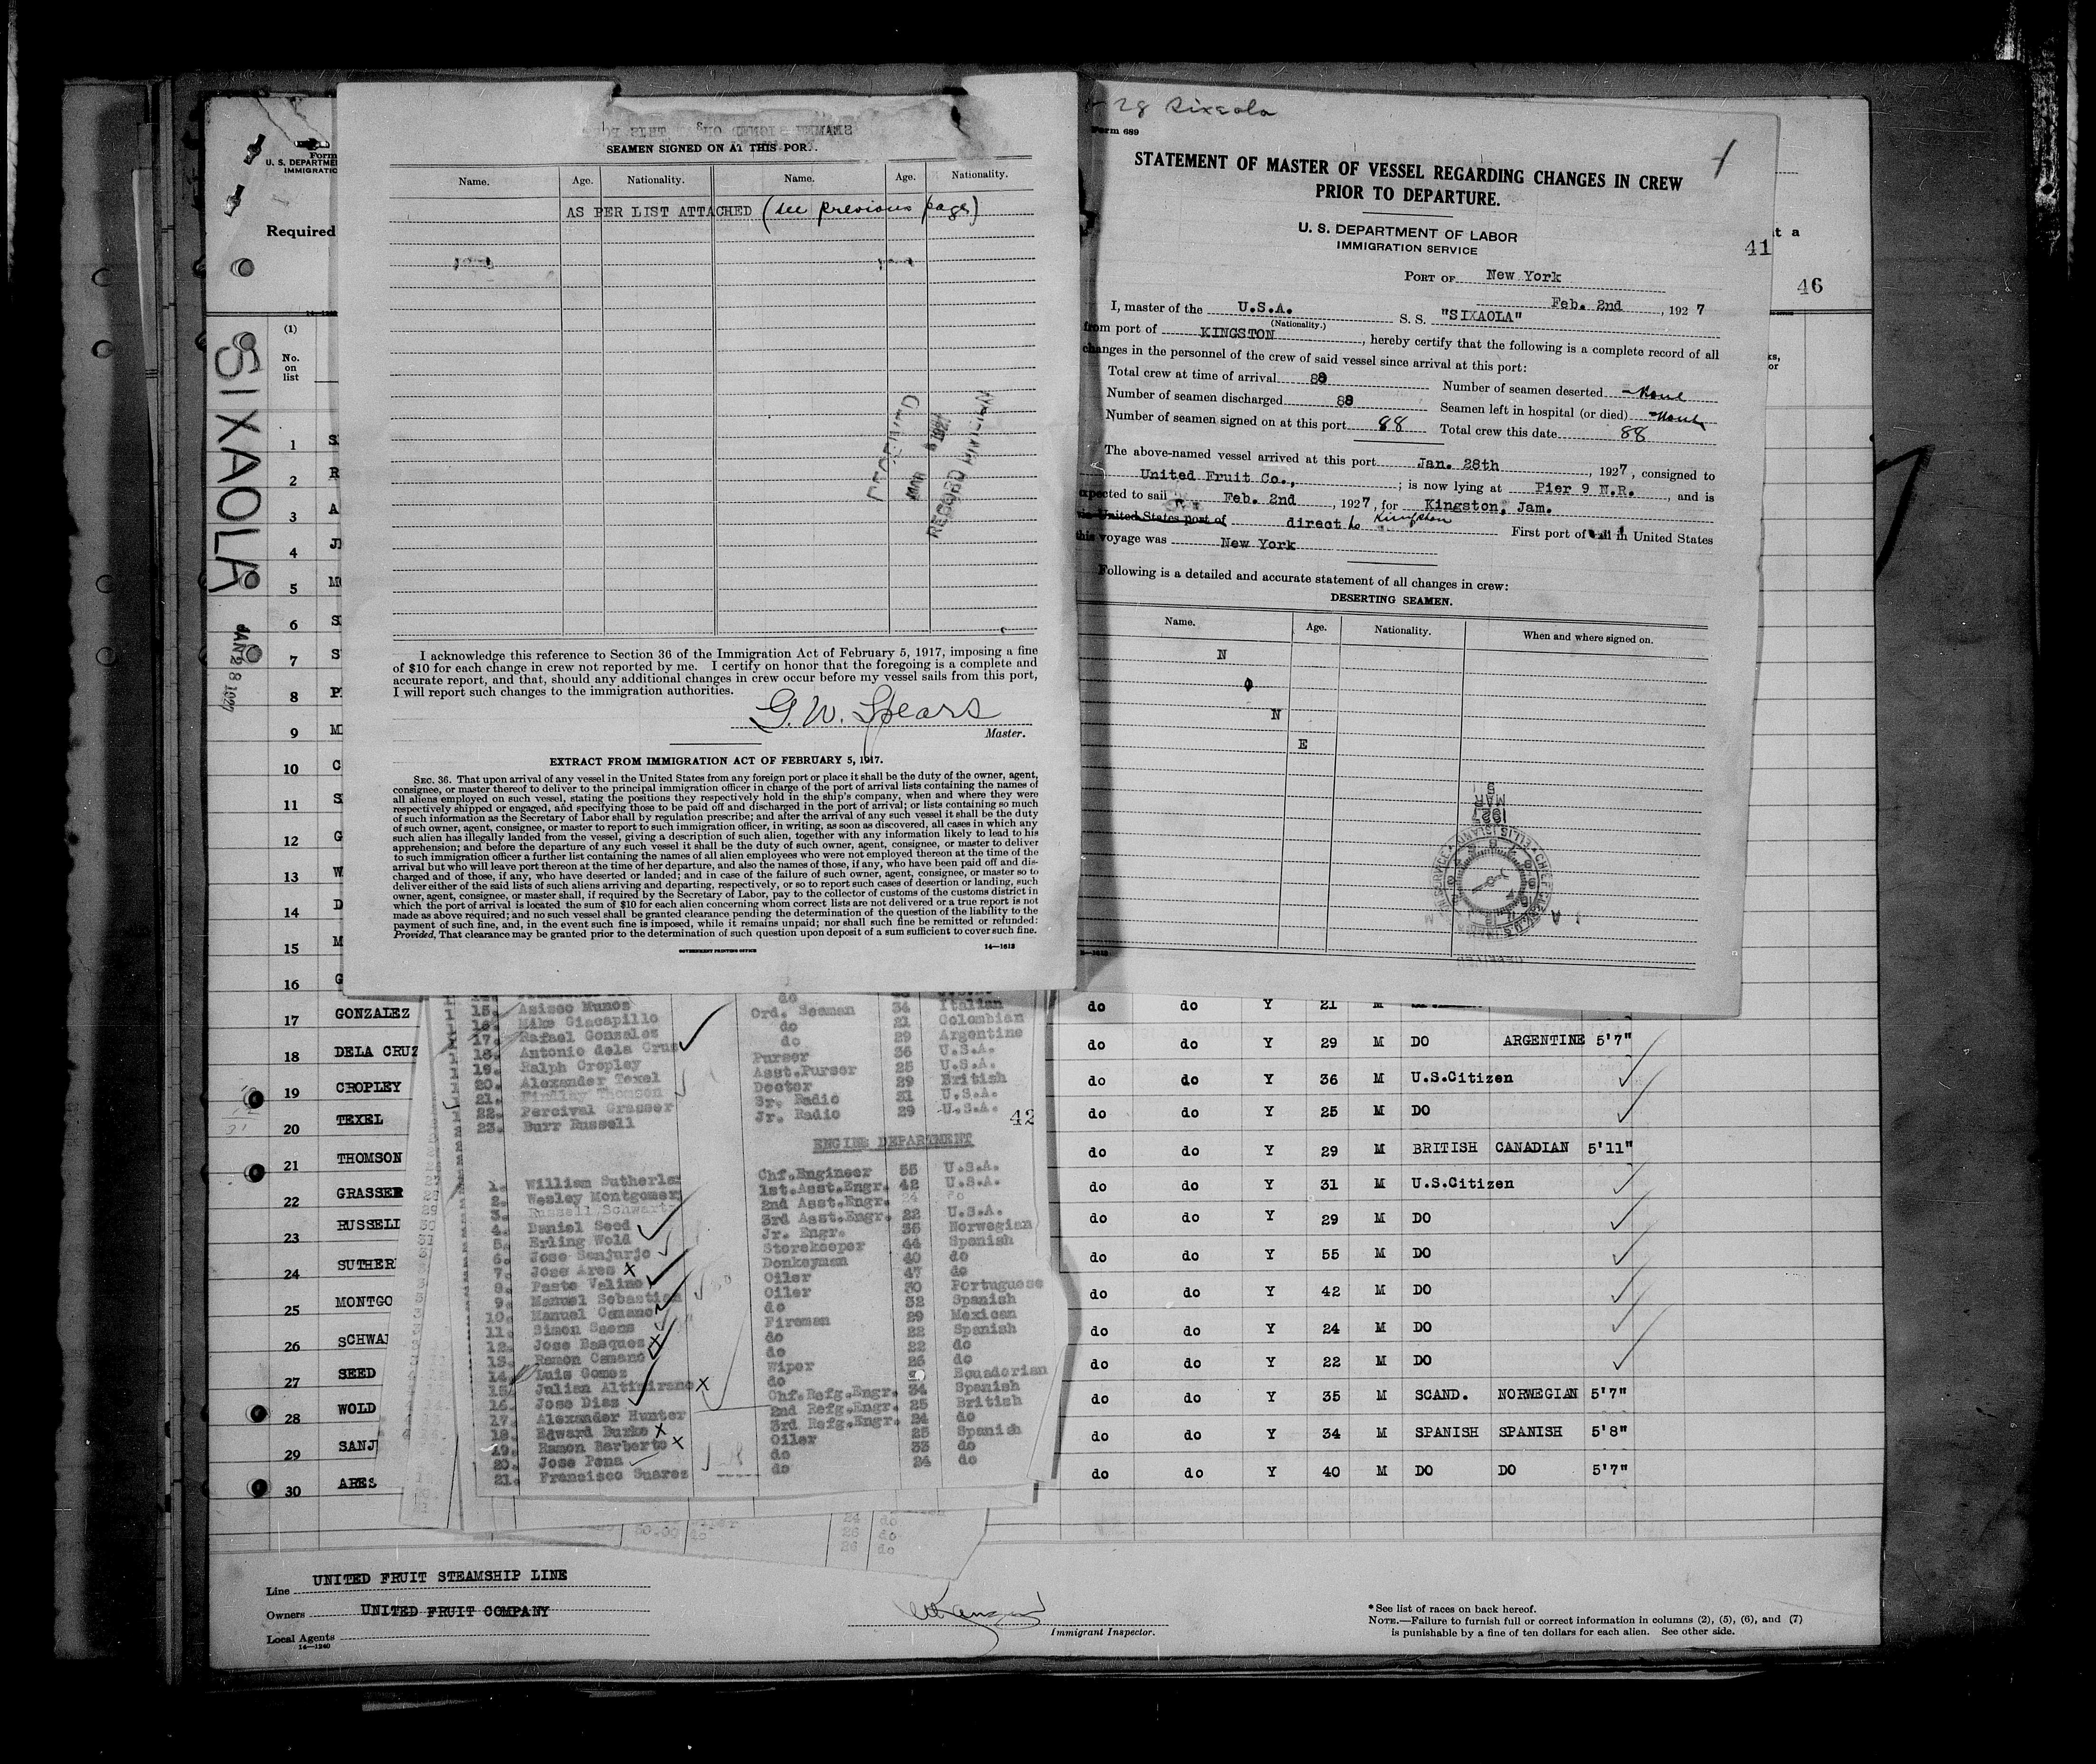 SEAMEN SIGNED ON AT THIS POR
Name. Age. Nationality. Name. Age. Nationality.
AS PER LIST ATTACHED (see previous page)
I acknowledge this reference to Section 36 of the Immigration Act of February 5, 1917, imposing a fine
of $10 for each change in crew not reported by me. I certify on honor that the foregoing is a complete and
accurate report, and that, should any additional changes in crew occur before my vessel sails from this port,
I will report such changes to the immigration authorities.
G. W. Spears
Master.
EXTRACT FROM IMMIGRATION ACT OF FEBRUARY 5, 1917.
SEC. 36. That upon arrival of any vessel in the United States from any foreign port or place it shall be the duty of the owner, agent,
consignee, or master thereof to deliver to the principal immigration officer in charge of the port of arrival lists containing the names of
all aliens employed on such vessel, stating the positions they respectively hold in the ship's company, when and where they were
respectively shipped or engaged, and specifying those to be paid off and discharged in the port of arrival; or lists containing so much
of such information as the Secretary of Labor shall by regulation prescribe; and after the arrival of any such vessel it shall be the duty
of such owner, agent, consignee, or master to report to such immigration officer, in writing, as soon as discovered, all cases in which any
such alien has illegally landed from the vessel, giving a description of such alien, together with any information likely to lead to his
apprehension; and before the departure of any such vessel it shall be the duty of such owner, agent, consignee, or master to deliver
to such immigration officer a further list containing the names of all alien employees who were not employed thereon at the time of the
arrival but who will leave port thereon at the time of her departure, and also the names of those, if any, who have been paid off and dis-
charged and of those, if any, who have deserted or landed; and in case of the failure of such owner, agent, consignee, or master so to
deliver either of the said lists of such aliens arriving and departing, respectively, or so to report such cases of desertion or landing, such
owner, agent, consignee, or master, shall, if required by the Secretary of Labor, pay to the collector of customs of the customs district in
which the port of arrival is located the sum of $10 for each alien concerning whom correct lists are not delivered or a true report is not
made as above required; and no such vessel shall be granted clearance pending the determination of the question of the liability to the
payment of such fine, and, in the event such fine is imposed, while it remains unpaid; nor shall such fine be remitted or refunded:
Provided, That clearance may be granted prior to the determination of such question upon deposit of a sum sufficient to cover such fine.
GOVERNMENT PRINTING OFFICE 14—1613
28 Sixaola
Form 689
STATEMENT OF MASTER OF VESSEL REGARDING CHANGES IN CREW
PRIOR TO DEPARTURE.
U. S. DEPARTMENT OF LABOR
IMMIGRATION SERVICE
41
PORT OF New York
Feb. 2nd, 1927
I, master of the U.S.A. S. S. "SIXAOLA"
(Nationality.)
from port of KINGSTON, hereby certify that the following is a complete record of all
changes in the personnel of the crew of said vessel since arrival at this port:
Total crew at time of arrival 88 Number of seamen deserted None
Number of seamen discharged 88 Seamen left in hospital (or died) None
Number of seamen signed on at this port 88 Total crew this date 88
The above-named vessel arrived at this port Jan. 28th, 1927, consigned to
United Fruit Co., ; is now lying at Pier 9 N.R., and is
expected to sail Feb. 2nd, 1927, for Kingston, Jam.
via United States port of direct to Kingston First port of call in United States
this voyage was New York
Following is a detailed and accurate statement of all changes in crew:
DESERTING SEAMEN.
Name. Age. Nationality. When and where signed on.
N
O
N
E
Form
U. S. DEPARTME
IMMIGRATIC
Required
t a
46
(1)
No.
on
list
SIXAOLA
JAN 28 1927
1 S
2 R
3 A
4 J
5 M
6 S
7 S
8 P
9 M
10 C
11 S
12 G
13 W
14 D
15 M
16 G
17 GONZALEZ do do Y 21 M
18 DELA CRUZ do do Y 29 M DO ARGENTINE 5'7"
19 CROPLEY do do Y 36 M U.S.Citizen
20 TEXEL do do Y 25 M DO
21 THOMSON do do Y 29 M BRITISH CANADIAN 5'11"
22 GRASSER do do Y 31 M U.S.Citizen
23 RUSSELL do do Y 29 M DO
24 SUTHER do do Y 55 M DO
25 MONTGO do do Y 42 M DO
26 SCHWA do do Y 24 M DO
27 SEED do do Y 22 M DO
28 WOLD do do Y 35 M SCAND. NORWEGIAN 5'7"
29 SANJ do do Y 34 M SPANISH SPANISH 5'8"
30 ARES do do Y 40 M DO DO 5'7"
15. Azisco Munos do
16. Mike Giacapillo Ord. Seaman 34 Italian
17. Rafael Gonzalez do 21 Colombian
18. Antonio dela Cruz do 29 Argentine
19. Ralph Cropley Purser 36 U.S.A.
20. Alexander Texel Asst.Purser 25 U.S.A.
21. Findlay Thomson Doctor 29 British
22. Percival Grasser Sr. Radio 31 U.S.A.
23. Burr Russell Jr. Radio 29 U.S.A.
42
ENGINE DEPARTMENT
1. William Sutherla Chf.Engineer 55 U.S.A.
2. Wesley Montgomery 1st.Asst.Engr. 42 U.S.A.
3. Russell Schwartz 2nd Asst.Engr. 24 do
4. Daniel Seed 3rd Asst.Engr. 22 U.S.A.
5. Erling Wold Jr. Engr. 35 Norwegian
6. Jose Sanjurjo Storekeeper 44 Spanish
7. Jose Ares Donkeyman 40 do
8. Fasto Velino Oiler 47 do
9. Manuel Sebastian Oiler 30 Portuguese
10. Manuel Camano do 32 Spanish
11. Simon Saens Fireman 29 Mexican
12. Jose Basques do 22 Spanish
13. Ramon Camano do 22 do
14. Luis Gomez Wiper 26 do
15. Julian Altimirano do Ecuadorian
16. Jose Dias Chf.Refg.Engr. 34 Spanish
17. Alexander Hunter 2nd Refg.Engr. 25 British
18. Edward Burke 3rd Refg.Engr. 24 do
19. Ramon Barberto Oiler 25 Spanish
20. Jose Pena do 33 do
21. Francisco Suarez do 24 do
24
26 do
26 do
Line UNITED FRUIT STEAMSHIP LINE
Owners UNITED FRUIT COMPANY
Local Agents
14—1240
Immigrant Inspector.
* See list of races on back hereof.
NOTE.—Failure to furnish full or correct information in columns (2), (5), (6), and (7)
is punishable by a fine of ten dollars for each alien. See other side.